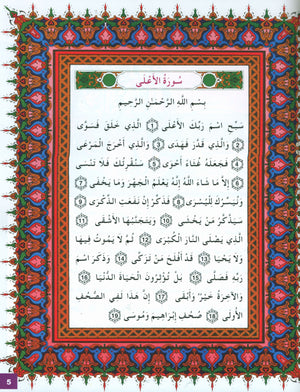 سُورَةُ الْأَعْلَى
بِسْمِ اللَّهِ الرَّحْمَٰنِ الرَّحِيمِ
سَبِّحِ اسْمَ رَبِّكَ الْأَعْلَى ١ الَّذِي خَلَقَ فَسَوَّى
٢ وَالَّذِي قَدَّرَ فَهَدَى ٣ وَالَّذِي أَخْرَجَ الْمَرْعَى
٤ فَجَعَلَهُ غُثَاءً أَحْوَى ٥ سَنُقْرِئُكَ فَلَا تَنْسَى
٦ إِلَّا مَا شَاءَ اللَّهُ إِنَّهُ يَعْلَمُ الْجَهْرَ وَمَا يَخْفَى ٧
وَنُيَسِّرُكَ لِلْيُسْرَى ٨ فَذَكِّرْ إِنْ نَفَعَتِ الذِّكْرَى ٩
سَيَذَّكَّرُ مَنْ يَخْشَى ١٠ وَيَتَجَنَّبُهَا الْأَشْقَى ١١
الَّذِي يَصْلَى النَّارَ الْكُبْرَى ١٢ ثُمَّ لَا يَمُوتُ فِيهَا
وَلَا يَحْيَا ١٣ قَدْ أَفْلَحَ مَنْ تَزَكَّى ١٤ وَذَكَرَ اسْمَ
رَبِّهِ فَصَلَّى ١٥ بَلْ تُؤْثِرُونَ الْحَيَاةَ الدُّنْيَا ١٦
وَالْآخِرَةُ خَيْرٌ وَأَبْقَى ١٧ إِنَّ هَذَا لَفِي الصُّحُفِ
الْأُولَى ١٨ صُحُفِ إِبْرَاهِيمَ وَمُوسَى ١٩
5